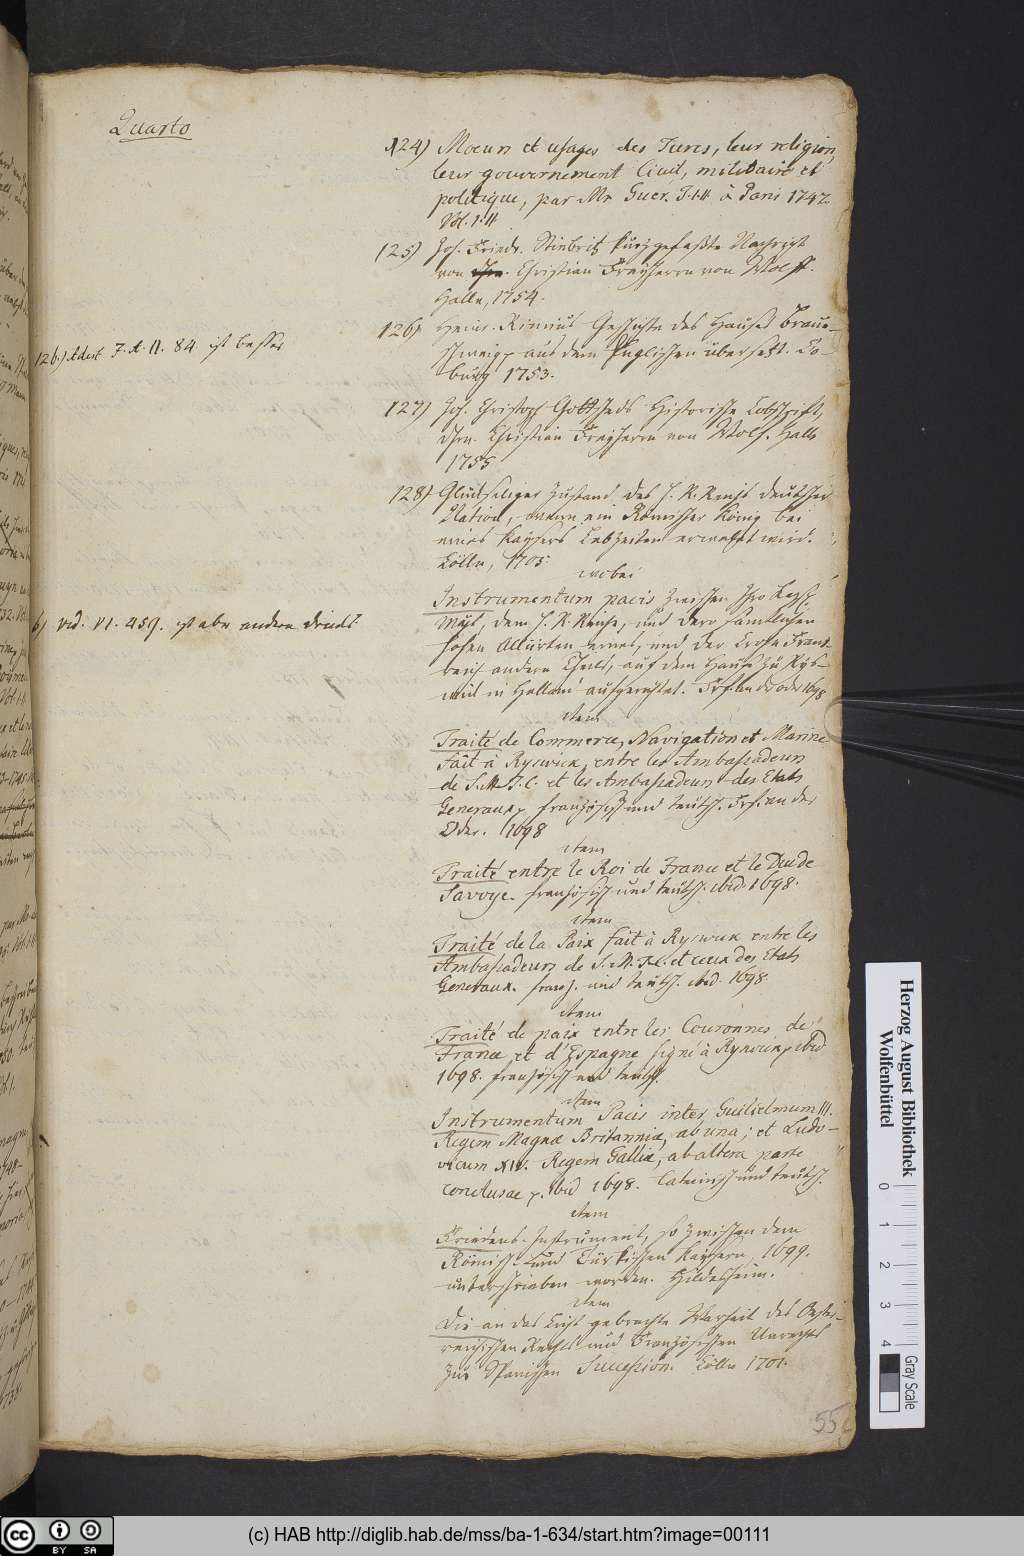 Quarto
124) Moeurs et usages des Turcs, leur religion,
leur gouvernement Civil, militaire et
politique, par Mr Guer. T. I. II à Paris 1747.
Vol. I. II
125) Joh. Friedr. Stiebritz kurzgefaßte Nachricht
von Christian Freyherrn von Wolff.
Halle, 1754.
126) Heinr. Rimius Geschichte des Hauses Braun-
schweig aus dem Englischen übersetzt. Co-
burg 1753.
126.) adest 7. A. II. 84. ist besser
127) Joh. Christoph Gottscheds Historische Lobschrift,
Christian Freyherrn von Wolf. Halle
1755
128) Glückseliger Zustand des H. R. Reichs deutscher
Nation, wenn ein Römischer König bei
eines Kaysers Lebzeiten erwehlt wird.
Cölln, 1705.
wobei
b) vid. VI. 459. ist aber anderer druck
Instrumentum pacis zwischen Ihro Kayß.
Mayt, dem H. R. Reiche, und dero sämtlichen
hohen Alliirten eines, und der Crohn Frank-
reich andern Theils, auf dem Hause zu Rys-
wick in Holland aufgerichtet. Frf. an der oder 1698
item
Traité de Commerce, Navigation et Marine
Fait à Ryswick, entre les Ambassadeurs
de S. M. T. C. et les Ambassadeurs des Etats
Generaux, französisch und teutsch. Frf. an der
Oder. 1698
item
Traité entre le Roi de France et le Duc de
Savoye. französisch und teutsch. ibid. 1698.
item
Traité de la Paix fait à Ryswick entre les
Ambassadeurs de S. M. T. C. et ceux des Etats
Generaux. französ. und teutsch. ibid. 1698.
item
Traité de paix entre les Couronnes de
France et d'Espagne signé à Ryswick, ibid
1698. französisch und teutsch.
item
Instrumentum Pacis inter Guilielmum III.
Regem Magnæ Britanniæ, ab una; et Ludo-
vicum XIV. Regem Galliæ, ab altera parte
conclusae p. ibid 1698. Lateinisch und teutsch.
item
Friedens-Instrument, so zwischen dem
Römisch- und Türkischen Kaysern 1699.
unterschrieben worden. Hildesheim.
item
Die an das Licht gebrachte Warheit des Oester-
reichischen Rechts und Französischen Unrechts
zur Spanischen Succession. Cölln 1701.
55
Herzog August Bibliothek
Wolfenbüttel
0 1 2 3 4
Gray Scale
cc BY SA
(c) HAB http://diglib.hab.de/mss/ba-1-634/start.htm?image=00111